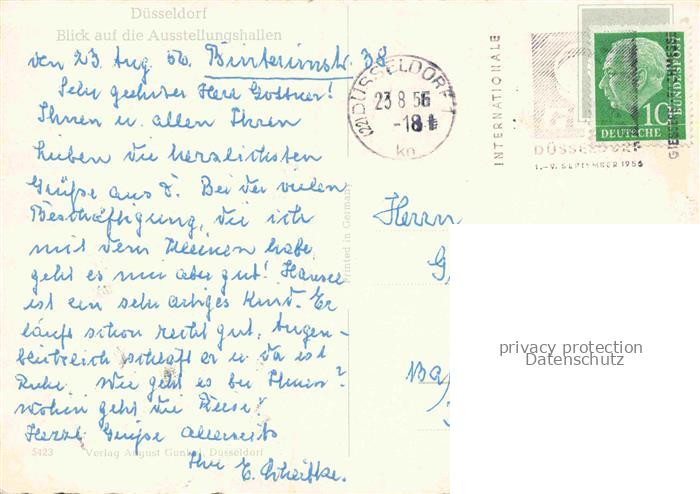 Düsseldorf
Blick auf die Ausstellungshallen
den 23. Aug. 56. Binterimstr. 38
Sehr geehrter Herr Gostner!
Ihnen u. allen Ihren
Lieben die herzlichsten
Grüße aus D. Bei der vielen
Beschäftigung, die ich
mit dem Kleinen habe,
geht es mir aber gut! Hansel
ist ein sehr artiges Kind. Er
läuft schon recht gut, Augen-
blicklich schläft er u. da ist
Ruhe. Wie geht es bei Ihnen?
Wohin geht die Reise?
Herzl. Grüße allerseits
Ihre E.
5423 Verlag August Gunkel, Düsseldorf
Printed in Germany
(22a) DÜSSELDORF 1
23.8.56
-18
kn
INTERNATIONALE
DÜSSELDORF
1.-9. SEPTEMBER 1956
10
DEUTSCHE
BUNDESPOST
Herrn
G
Ba
privacy protection
Datenschutz